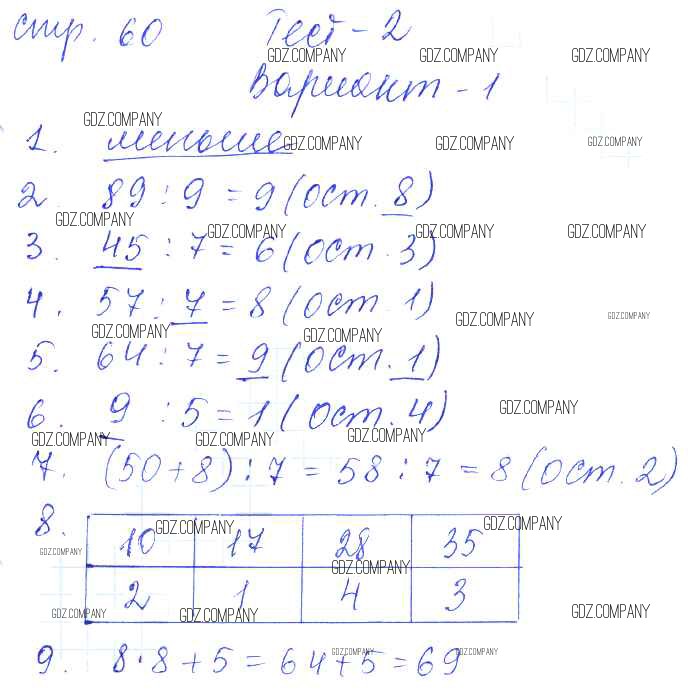 стр. 60 Тест - 2
GDZ.COMPANY GDZ.COMPANY GDZ.COMPANY
Вариант - 1
GDZ.COMPANY
1. меньше
GDZ.COMPANY GDZ.COMPANY GDZ.COMPANY
2. 89 : 9 = 9 (ост. 8)
GDZ.COMPANY GDZ.COMPANY GDZ.COMPANY GDZ.COMPANY
3. 45 : 7 = 6 (ост. 3)
4. 57 : 7 = 8 (ост. 1)
GDZ.COMPANY GDZ.COMPANY
GDZ.COMPANY GDZ.COMPANY
5. 64 : 7 = 9 (ост. 1)
6. 9 : 5 = 1 (ост. 4)
GDZ.COMPANY
GDZ.COMPANY GDZ.COMPANY GDZ.COMPANY
7. (50 + 8) : 7 = 58 : 7 = 8 (ост. 2)
8.
GDZ.COMPANY GDZ.COMPANY
10 17 28 35
GDZ.COMPANY GDZ.COMPANY
2 1 4 3
GDZ.COMPANY GDZ.COMPANY GDZ.COMPANY
9. 8 · 8 + 5 = 64 + 5 = 69
GDZ.COMPANY GDZ.COMPANY